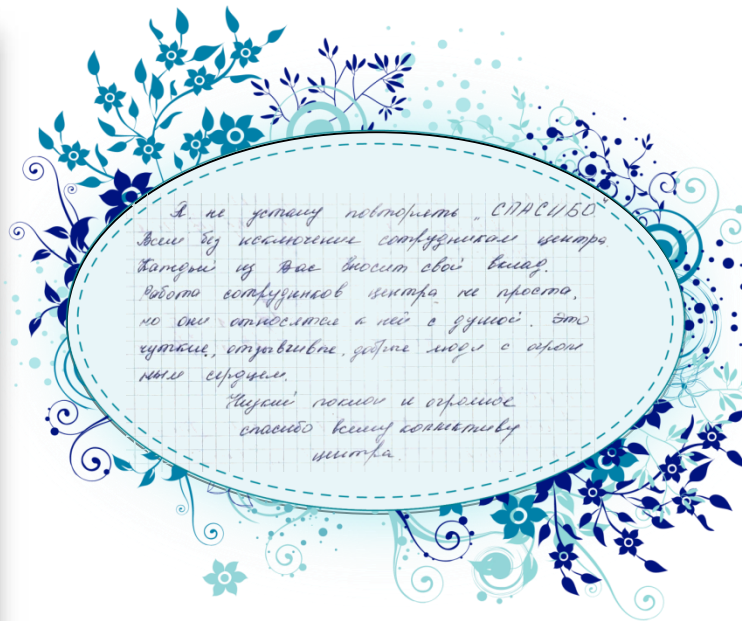 Я не устану повторять „СПАСИБО"
Всем без исключения сотрудникам центра
Каждый из Вас вносит свой вклад.
Работа сотрудников центра не проста,
но они относятся к ней с душой. Это
чуткие, отзывчивые, добрые люди с огром
ным сердцем.
Низкий поклон и огромное
спасибо всему коллективу
центра.